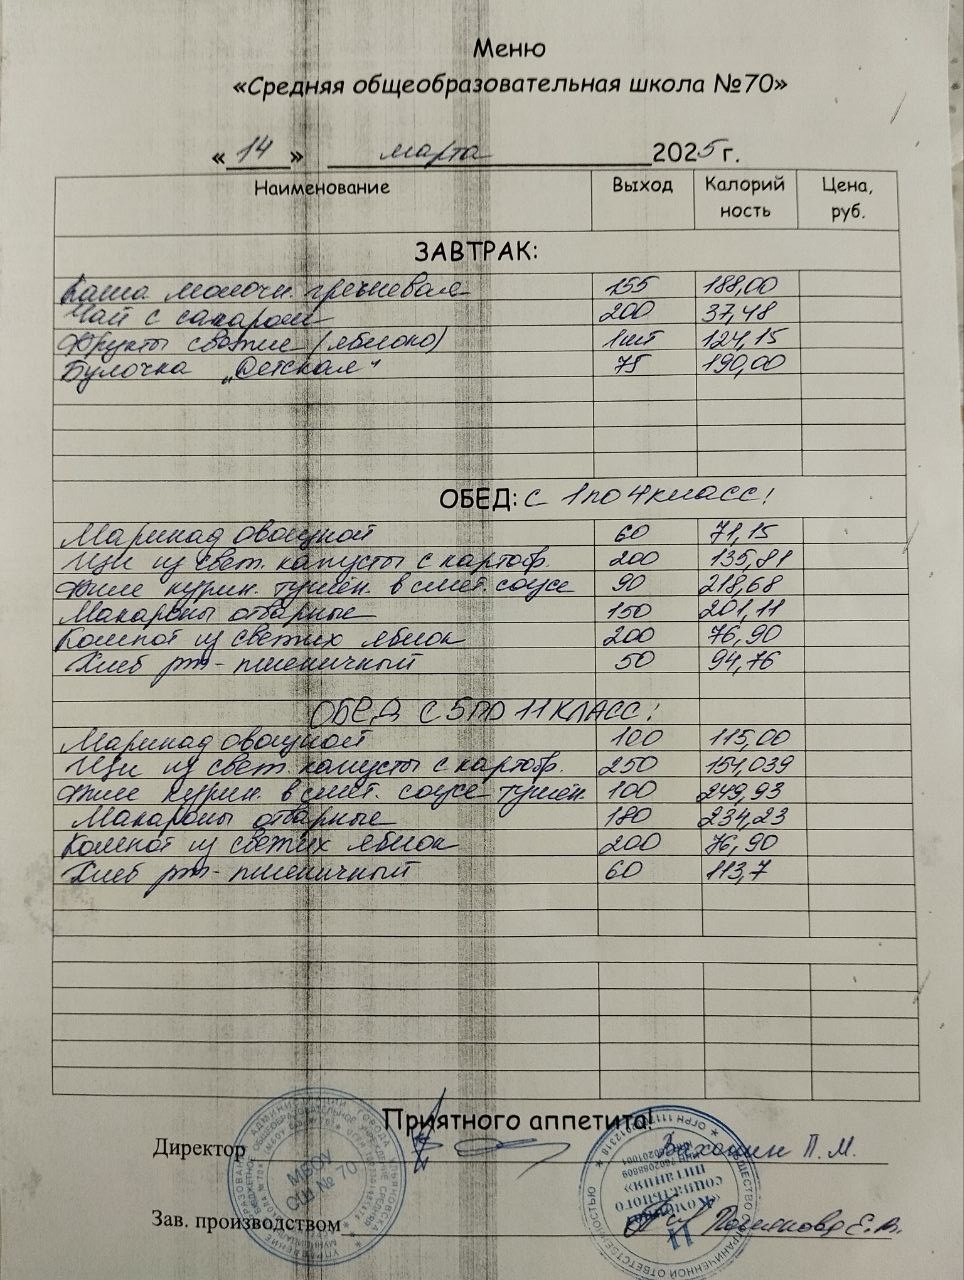 Меню
«Средняя общеобразовательная школа №70»
«14» марта 2025 г.
Наименование Выход Калорийность Цена, руб.
ЗАВТРАК:
Каша молочн. гречневая 155 188,00
Чай с сахаром 200 37,48
Фрукты свежие (яблоко) 1шт 124,15
Булочка „Детская" 75 190,00
ОБЕД: с 1 по 4 класс!
Маринад овощной 60 71,15
Щи из свеж. капусты с картоф. 200 135,81
Филе курин. тушён. в смет. соусе 90 218,68
Макароны отварные 150 201,11
Компот из свежих яблок 200 76,90
Хлеб рж-пшеничный 50 94,76
ОБЕД С 5 ПО 11 КЛАСС!
Маринад овощной 100 115,00
Щи из свеж. капусты с картоф. 250 154,039
Филе курин. в смет. соусе тушён. 100 249,93
Макароны отварные 180 234,23
Компот из свежих яблок 200 76,90
Хлеб рж-пшеничный 60 113,7
Приятного аппетита!
Директор П.М.
Зав. производством Е.В.
МБОУ
СШ № 70
социального
питания»